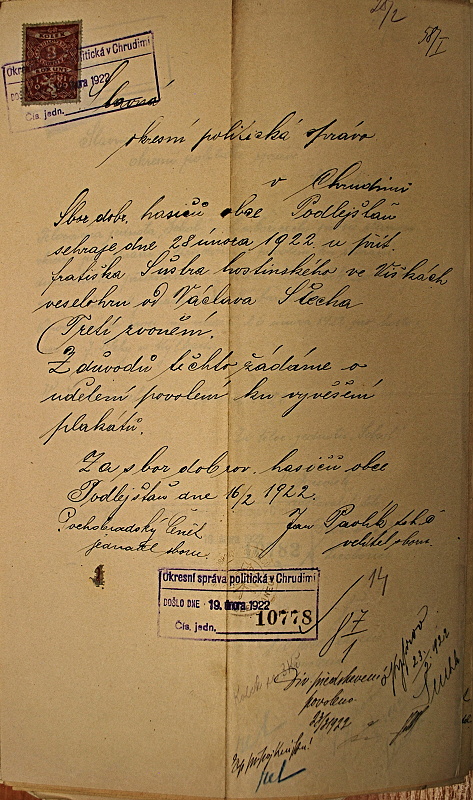 20/2
58/I
KOLEK
Okresní správa politická v Chrudimi
DOŠLO DNE února 1922
Čís. jedn.
Slavná
okresní politická správo
v Chrudimi
Sbor dobr. hasičů obce Podlejšťan
sehraje dne 28 února 1922 u
Šustra hostinského ve Vížkách
veselohru od Václava Štecha
Třetí zvonění.
Z důvodů těchto žádáme o
udělení povolení ku vyvěšení
plakátů.
Za sbor dobrov. hasičů obce
Podlejšťan dne 16/2 1922.
jednatel sboru.
Jan
velitel sboru
Okresní správa politická v Chrudimi
DOŠLO DNE 19. února 1922
Čís. jedn. 10778
14
87
1
Div. představení
povoleno
23/2 1922
23/2 122